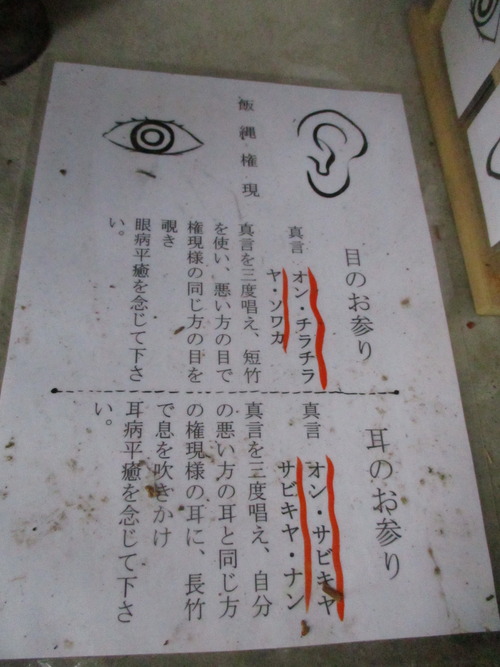 飯縄権現
目のお参り
真言 オン・チラチラ
ヤ・ソワカ
真言を三度唱え、短竹
を使い、悪い方の目で
権現様の同じ方の目を
覗き
眼病平癒を念じて下さ
い。
耳のお参り
真言 オン・サビキヤ
サビキヤ・ナン
真言を三度唱え、自分
の悪い方の耳と同じ方
の権現様の耳に、長竹
で息を吹きかけ
耳病平癒を念じて下さ
い。